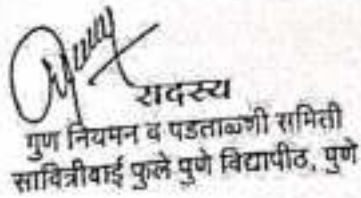 सदस्य
गुण नियमन व पडताळणी समिती
सावित्रीबाई फुले पुणे विद्यापीठ, पुणे